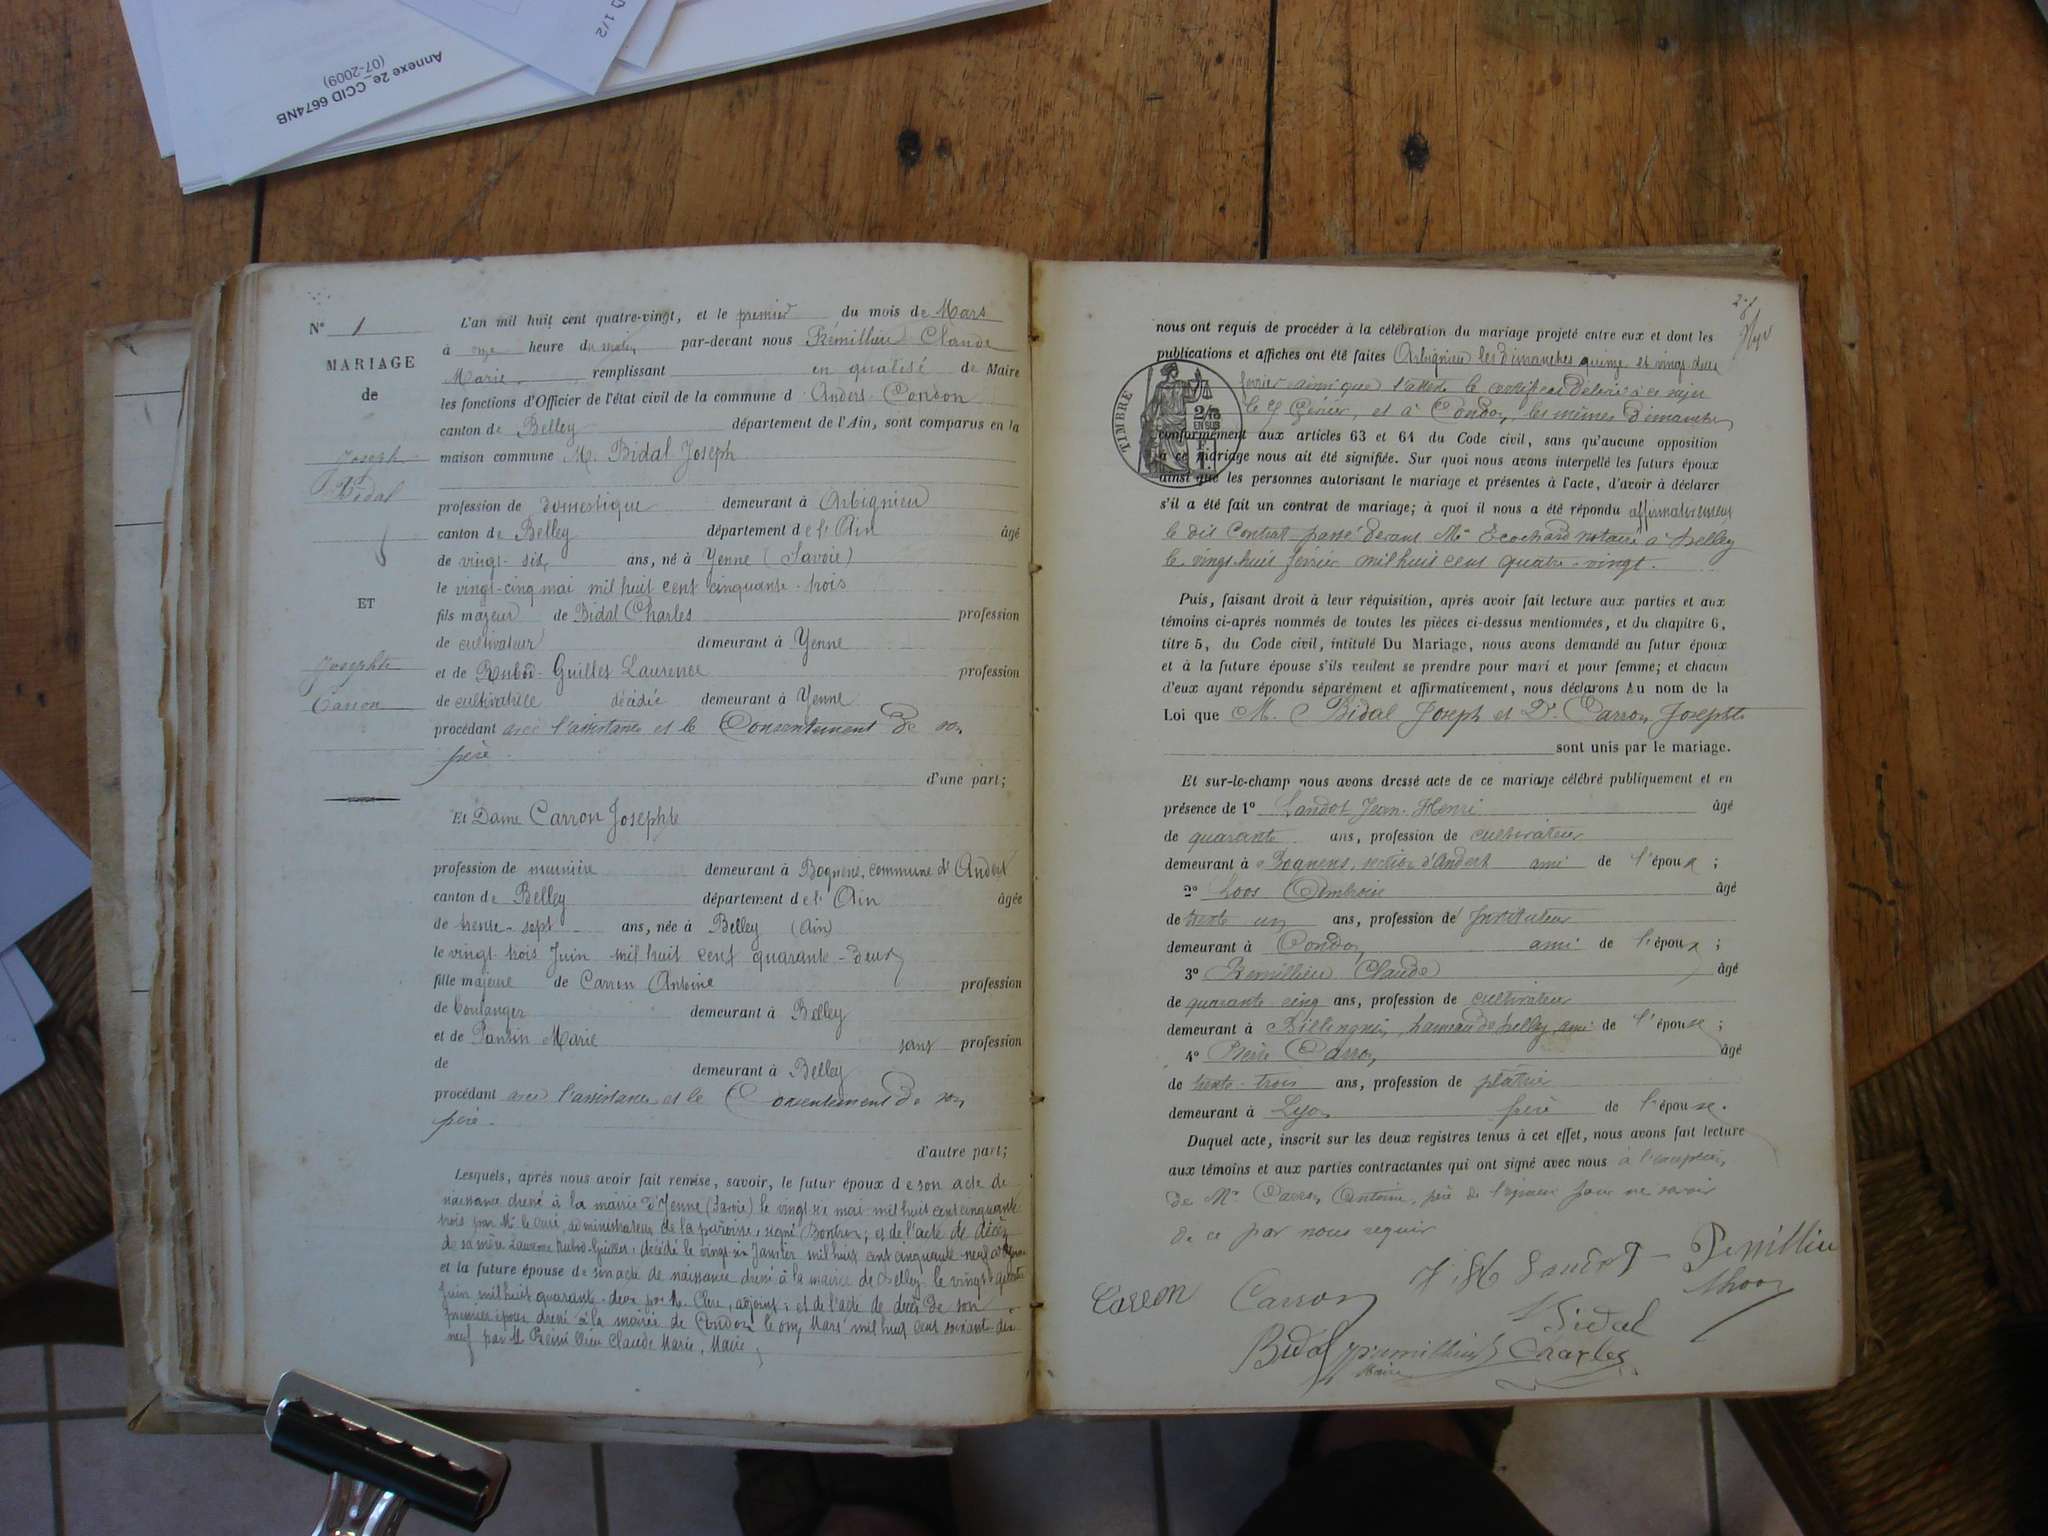 Annexe 2e_CCID 6674NB
(07-2009)
1/2
N° 1
MARIAGE
de
Joseph
Bidal
ET
Josephte
Carron
L'an mil huit cent quatre-vingt, et le premier du mois de Mars
à onze heure du matin par-devant nous Rémillieu Claude
Marie remplissant en qualité de Maire
les fonctions d'Officier de l'état civil de la commune d Andert-Condon
canton de Belley département de l'Ain, sont comparus en la
maison commune M. Bidal Joseph
profession de domestique demeurant à Arbignieu
canton de Belley département de l'Ain âgé
de vingt-six ans, né à Yenne (Savoie)
le vingt-cinq mai mil huit cent cinquante-trois
fils majeur de Bidal Charles profession
de cultivateur demeurant à Yenne
et de Rubod-Guillet Laurence profession
de cultivatrice décédée demeurant à Yenne
procédant avec l'assistance et le Consentement de son
père.
d'une part;
Et Dame Carron Josephte
profession de meunière demeurant à Bognens, commune d'Andert
canton de Belley département de l'Ain âgée
de trente-sept ans, née à Belley (Ain)
le vingt trois Juin mil huit cent quarante-deux
fille majeure de Carron Antoine profession
de boulanger demeurant à Belley
et de Pansin Marie sans profession
de demeurant à Belley
procédant avec l'assistance et le Consentement de son
père.
d'autre part;
Lesquels, après nous avoir fait remise, savoir, le futur époux de son acte de
naissance dressé à la mairie d'Yenne (Savoie) le vingt six mai mil huit cent cinquante
trois par Mr le Curé, administrateur de la paroisse, signé ; et de l'acte de décès
de sa mère Laurence Rubod-Guillet, décédée le vingt six Janvier mil huit cent cinquante neuf à Yenne
et la future épouse de son acte de naissance dressé à la mairie de Belley le vingt quatre
Juin mil huit quarante-deux par M. , adjoint; et de l'acte de décès de son
premier époux dressé à la mairie de Condon le onze Mars mil huit cent soixante-dix
neuf par M. Rémillieu Claude Marie, Maire,
nous ont requis de procéder à la célébration du mariage projeté entre eux et dont les
publications et affiches ont été faites Arbignieu les dimanches quinze et vingt-deux
février ainsi que l'atteste le certificat délivré à ce sujet
le Février, et à Condon, les mêmes Dimanches
TIMBRE
2/10
EN SUS
conformément aux articles 63 et 64 du Code civil, sans qu'aucune opposition
à ce mariage nous ait été signifiée. Sur quoi nous avons interpellé les futurs époux
ainsi que les personnes autorisant le mariage et présentes à l'acte, d'avoir à déclarer
s'il a été fait un contrat de mariage; à quoi il nous a été répondu affirmativement
le dit Contrat passé devant Me Ecochard notaire à Belley
le vingt-huit février mil huit cent quatre-vingt.
Puis, faisant droit à leur réquisition, après avoir fait lecture aux parties et aux
témoins ci-après nommés de toutes les pièces ci-dessus mentionnées, et du chapitre 6,
titre 5, du Code civil, intitulé Du Mariage, nous avons demandé au futur époux
et à la future épouse s'ils veulent se prendre pour mari et pour femme; et chacun
d'eux ayant répondu séparément et affirmativement, nous déclarons Au nom de la
Loi que M. Bidal Joseph et De Carron Josephte
sont unis par le mariage.
Et sur-le-champ nous avons dressé acte de ce mariage célébré publiquement et en
présence de 1° Landot Jean-Henri âgé
de quarante ans, profession de cultivateur
demeurant à Bognens, section d'Andert ami de l'époux ;
2° Loos Ambroise âgé
de trente un ans, profession de Instituteur
demeurant à Condon ami de l'époux ;
3° Rémillieu Claude âgé
de quarante cinq ans, profession de cultivateur
demeurant à Billignin, hameau de Belley ami de l'épouse ;
4° Pierre Carron âgé
de trente-trois ans, profession de plâtrier
demeurant à Lyon frère de l'épouse.
Duquel acte, inscrit sur les deux registres tenus à cet effet, nous avons fait lecture
aux témoins et aux parties contractantes qui ont signé avec nous à l'exception
de Mr Carron Antoine, père de l'épouse pour ne savoir
de ce par nous requis
Carron Carron J. H. Landot Remillieu
ALoos
Bidal
Bidal Rémillieu Charles
Maire